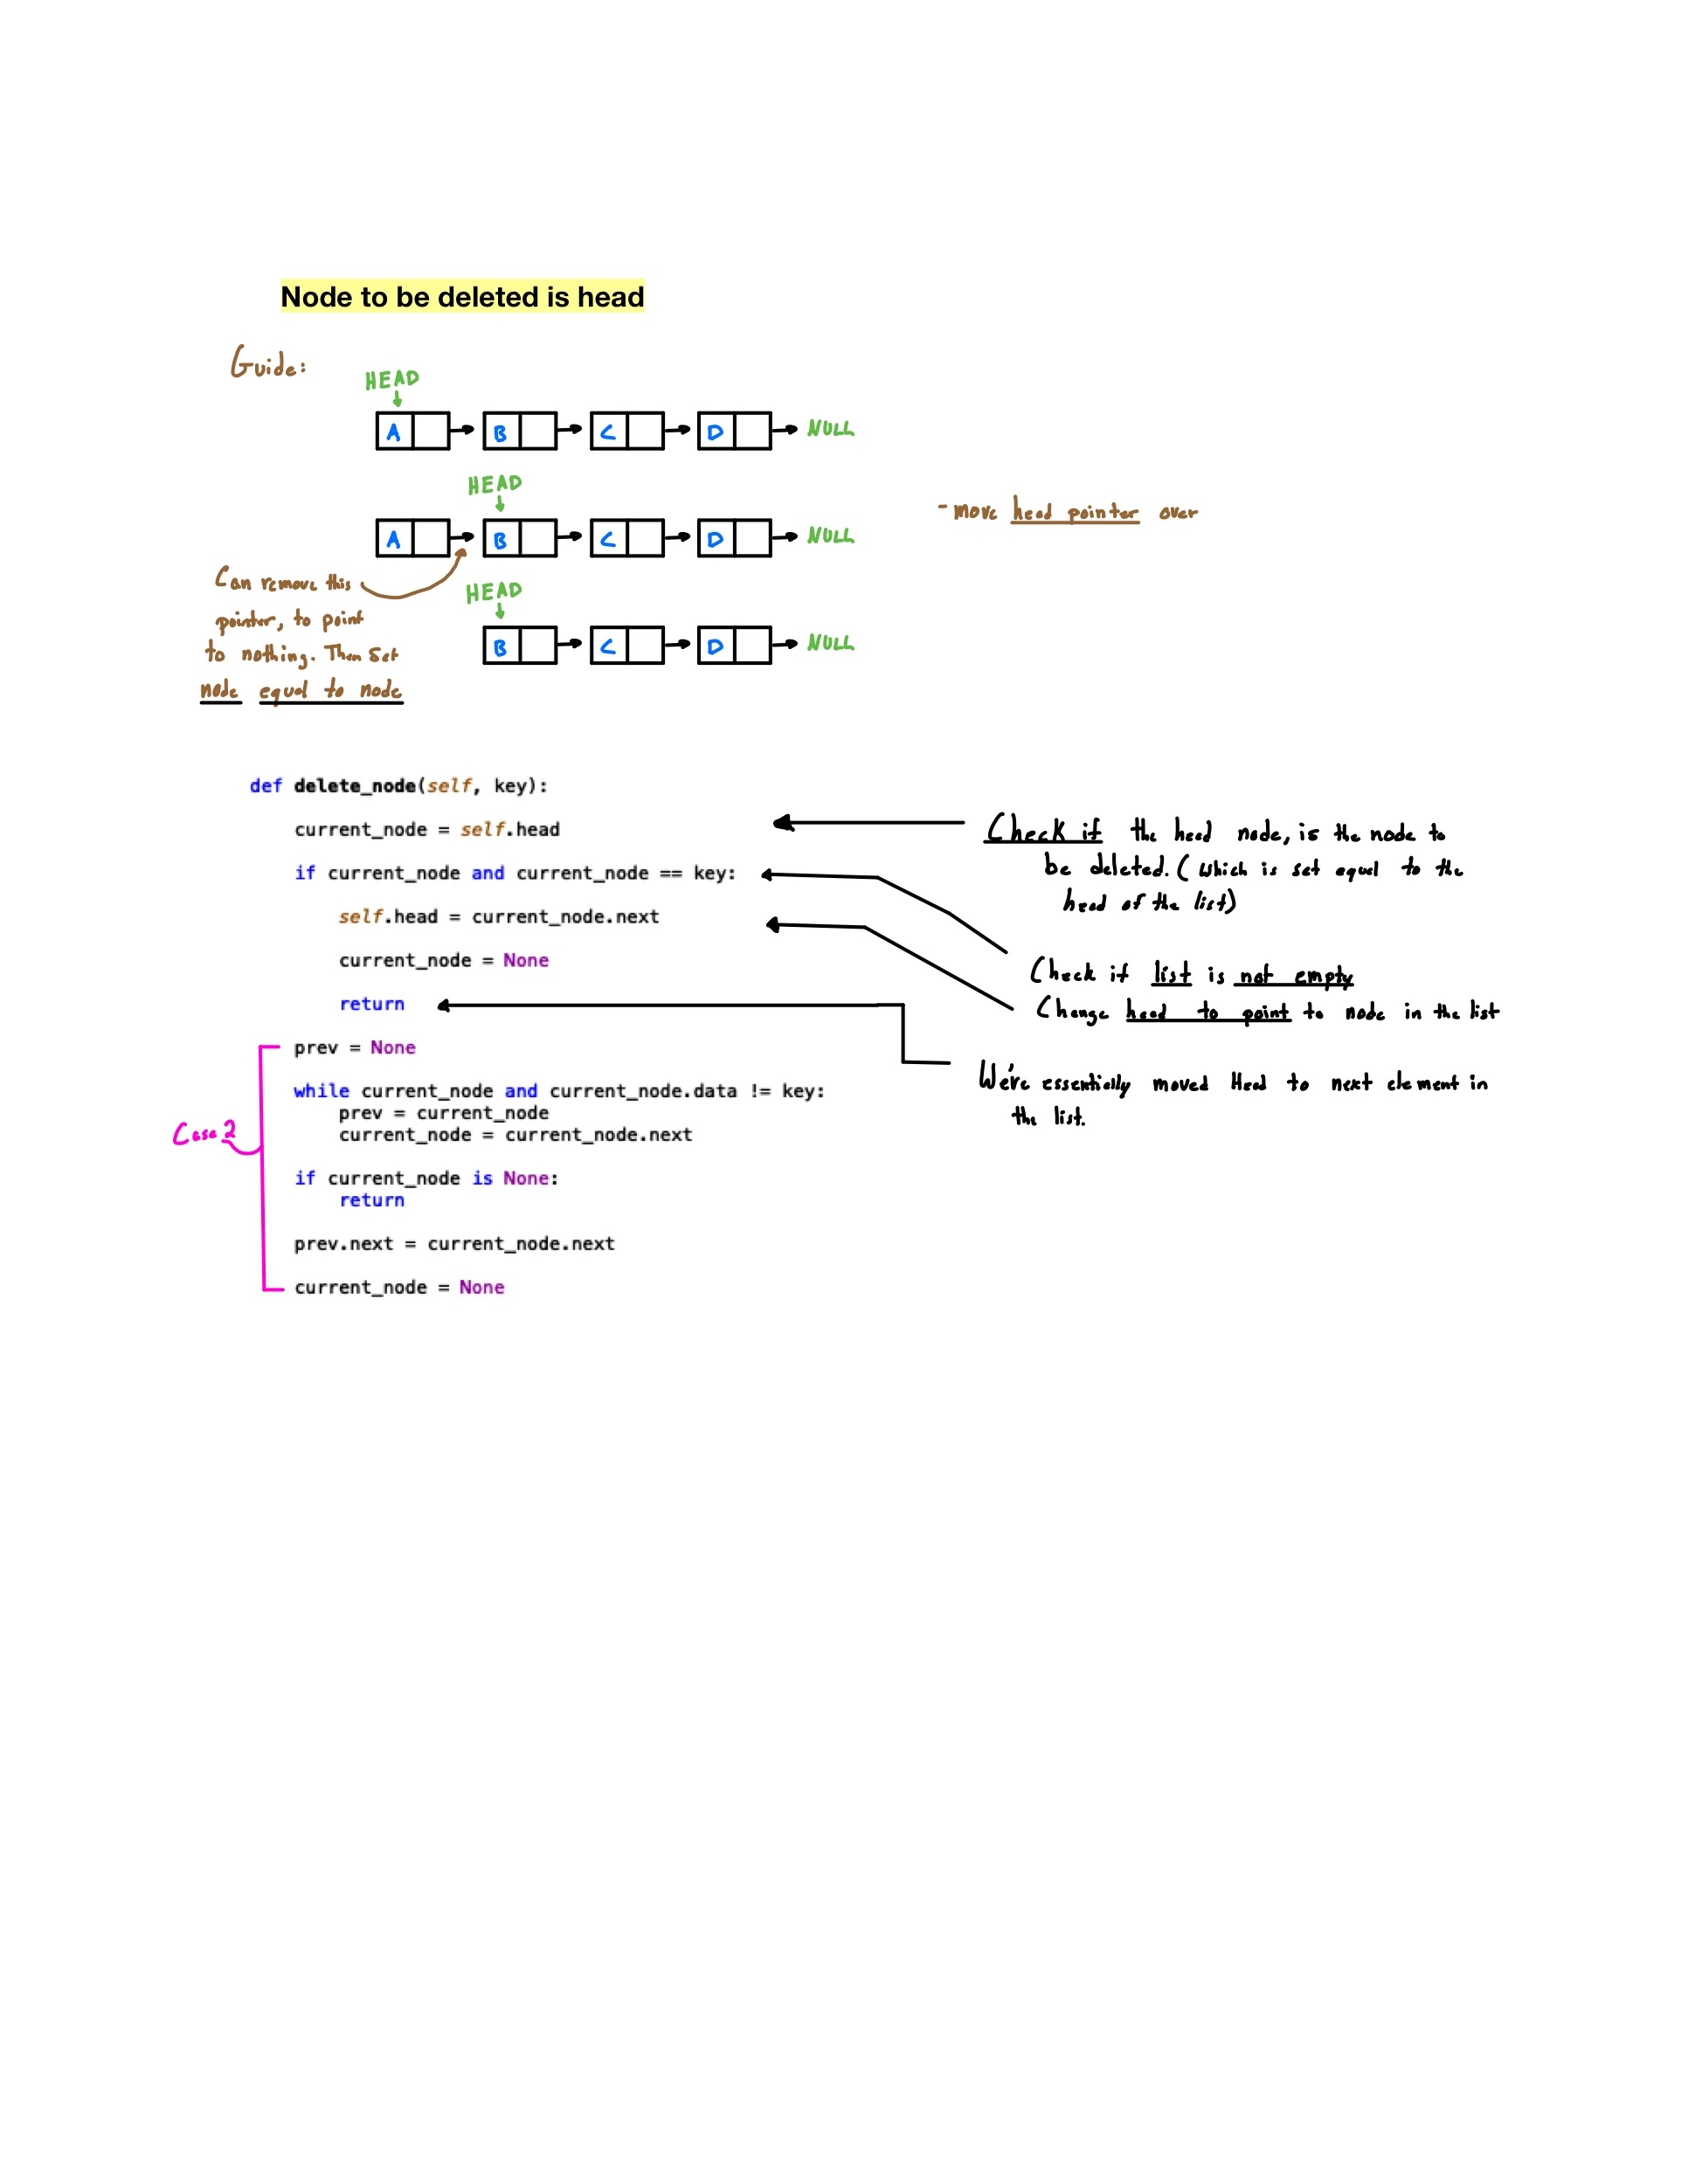 Node to be deleted is head
Guide:
HEAD
A B C D NULL
HEAD
A B C D NULL
- move head pointer over
Can remove this
pointer, to point
to nothing. Then set
node equal to node
HEAD
B C D NULL
def delete_node(self, key):
current_node = self.head
if current_node and current_node == key:
self.head = current_node.next
current_node = None
return
prev = None
while current_node and current_node.data != key:
prev = current_node
current_node = current_node.next
if current_node is None:
return
prev.next = current_node.next
current_node = None
Case 2
Check if the head node, is the node to
be deleted. (which is set equal to the
head of the list)
Check if list is not empty
Change head to point to node in the list
We've essentially moved Head to next element in
the list.